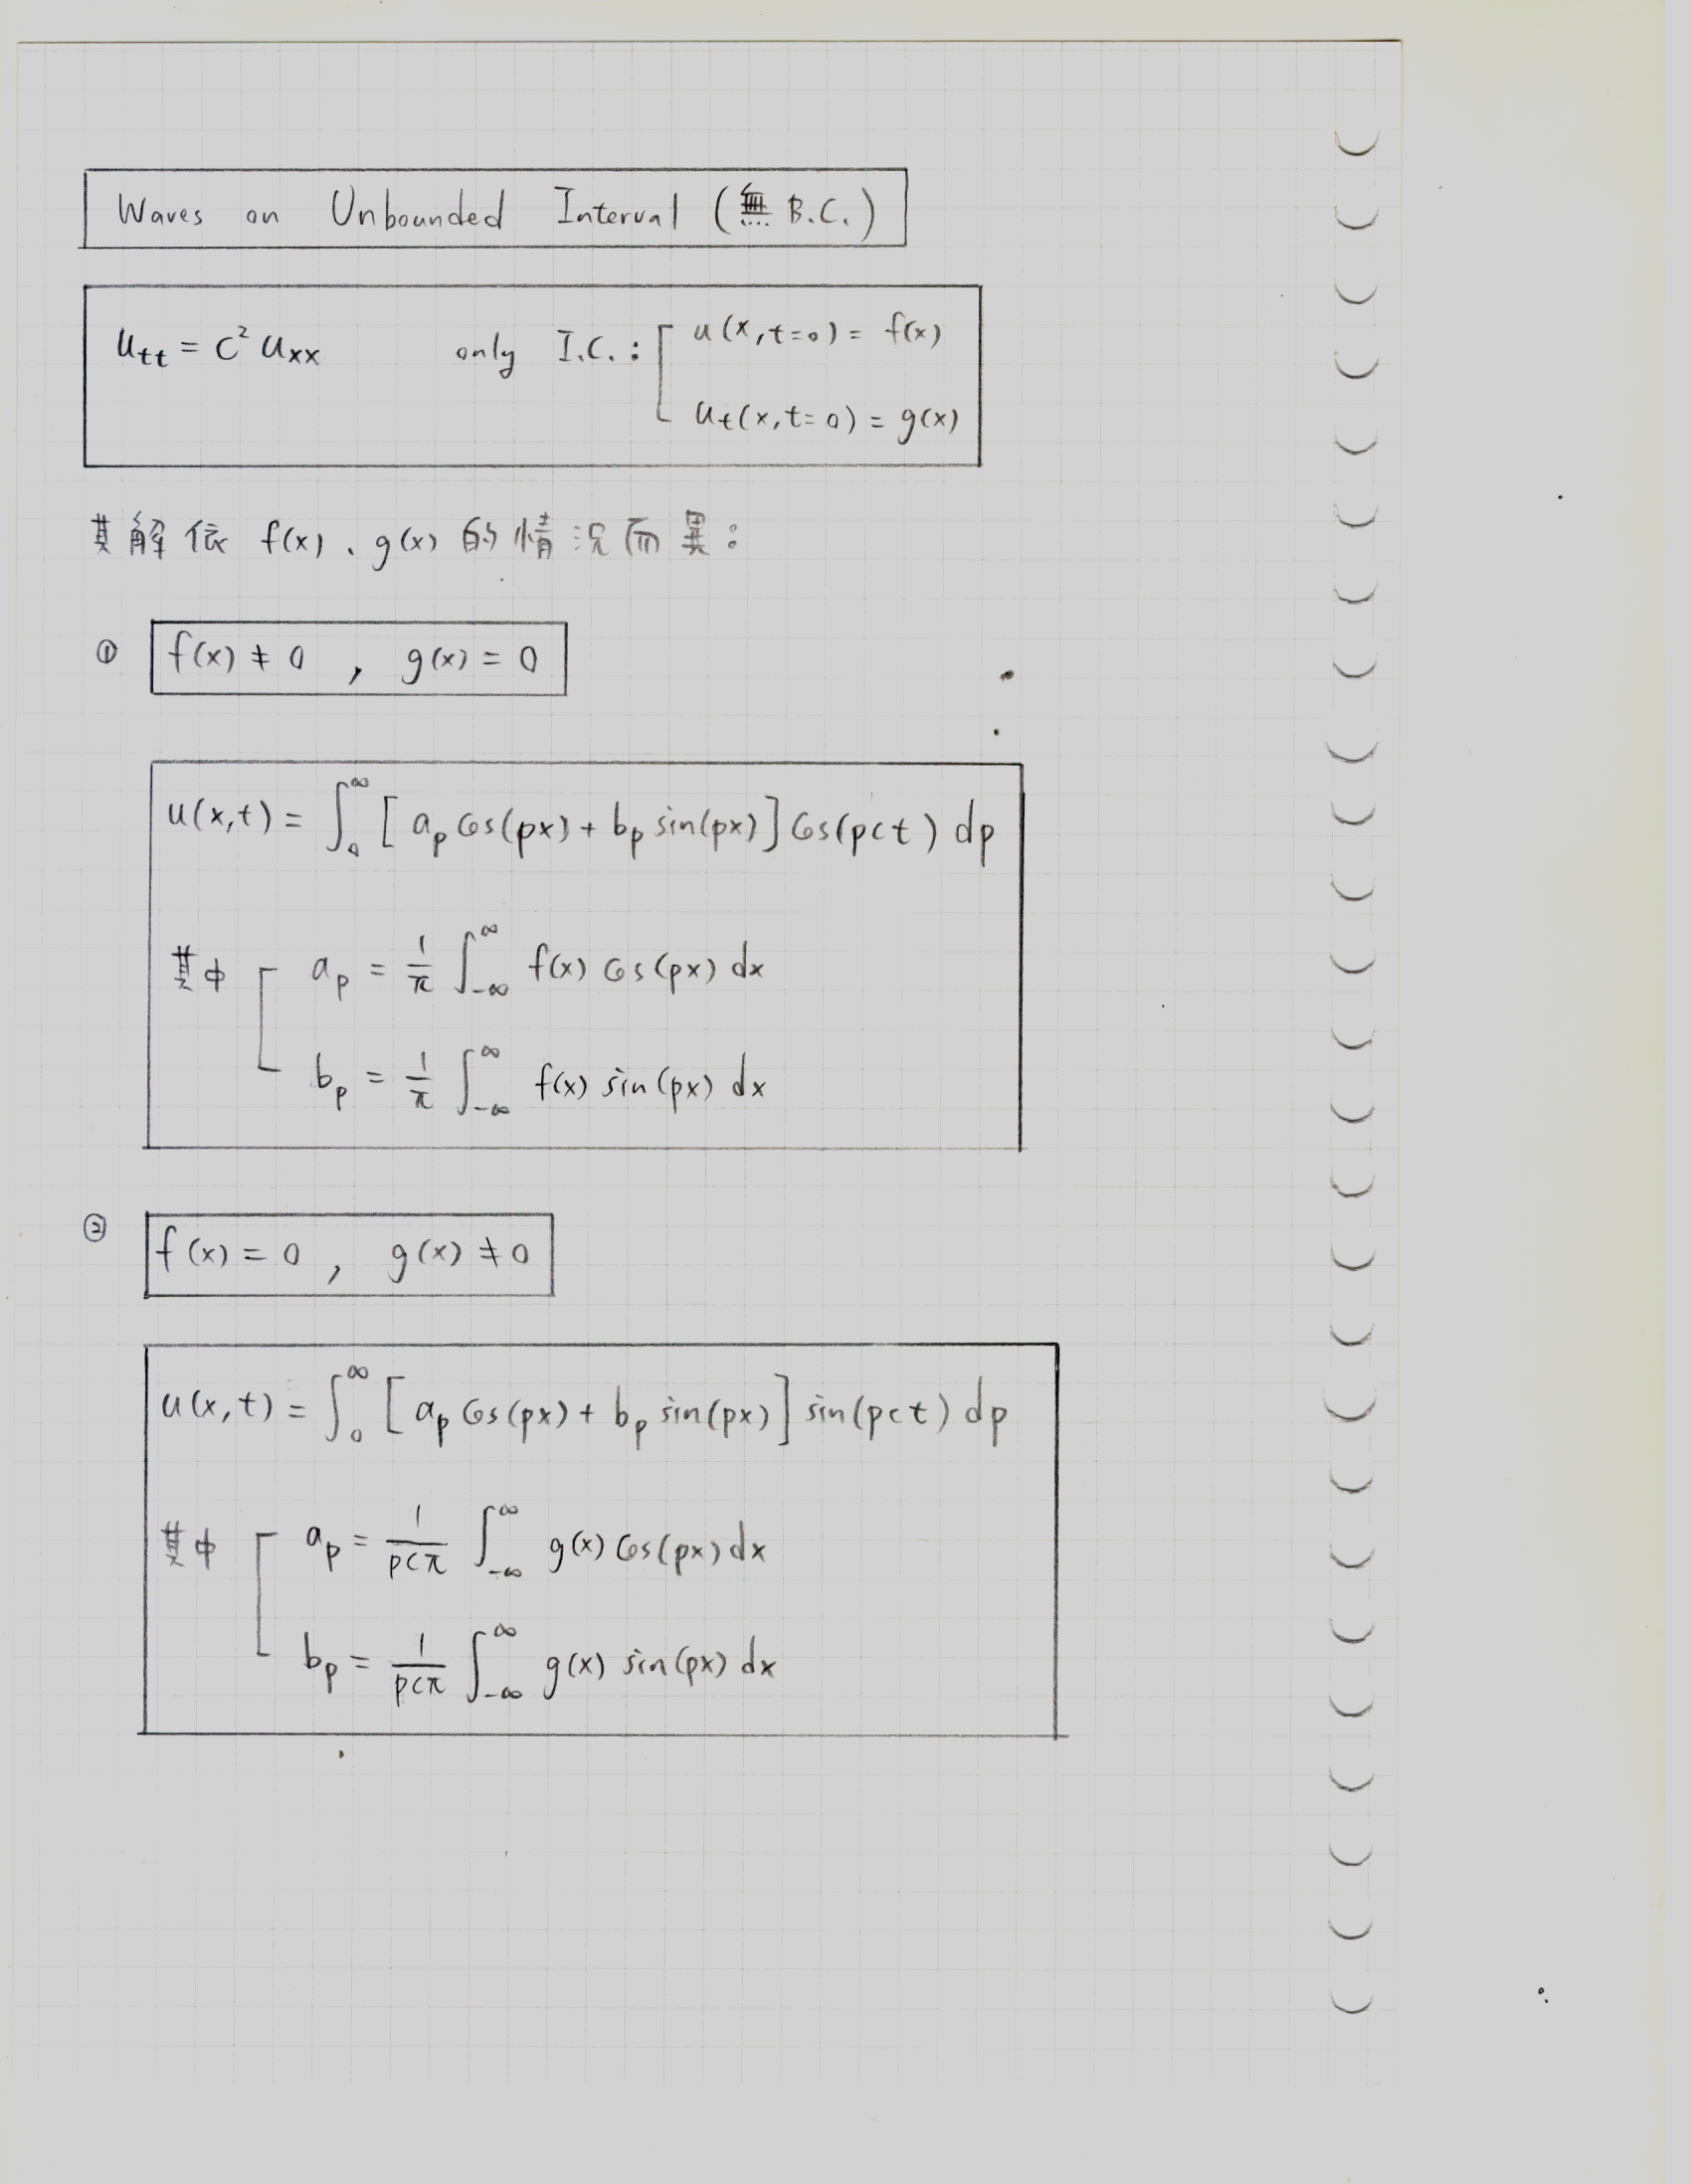 Waves on Unbounded Interval (無 B.C.)
u_tt = c² u_xx only I.C.: u(x,t=0) = f(x)
u_t(x,t=0) = g(x)
其解依 f(x)、g(x) 的情況而異:
① f(x) ≠ 0 , g(x) = 0
u(x,t) = ∫₀^∞ [ a_p cos(px) + b_p sin(px) ] cos(pct) dp
其中 a_p = 1/π ∫_{-∞}^∞ f(x) cos(px) dx
b_p = 1/π ∫_{-∞}^∞ f(x) sin(px) dx
② f(x) = 0 , g(x) ≠ 0
u(x,t) = ∫₀^∞ [ a_p cos(px) + b_p sin(px) ] sin(pct) dp
其中 a_p = 1/(pcπ) ∫_{-∞}^∞ g(x) cos(px) dx
b_p = 1/(pcπ) ∫_{-∞}^∞ g(x) sin(px) dx